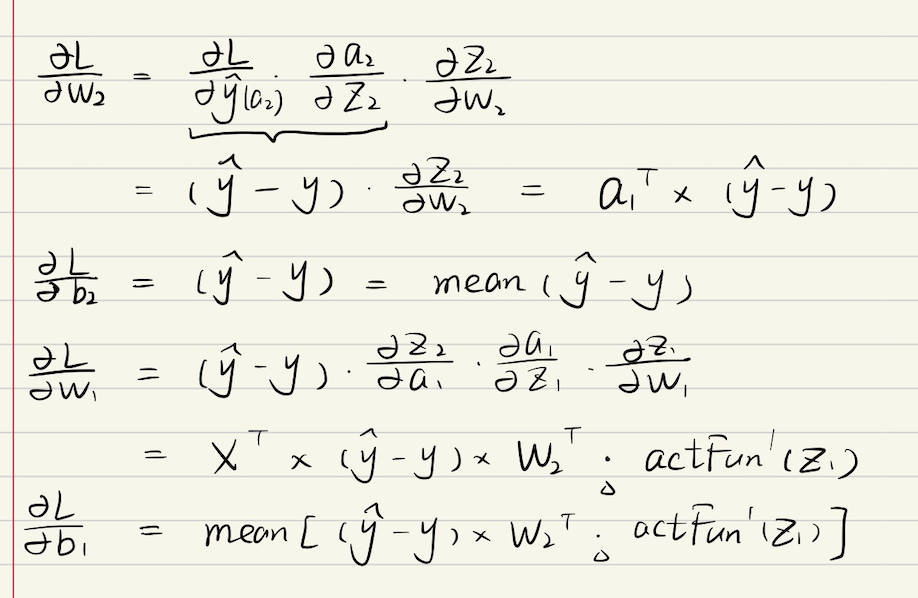 ∂L/∂W₂ = ∂L/∂ŷ(a₂) · ∂a₂/∂Z₂ · ∂Z₂/∂W₂
= (ŷ - y) · ∂Z₂/∂W₂ = a₁ᵀ × (ŷ-y)
∂L/∂b₂ = (ŷ - y) = mean(ŷ - y)
∂L/∂W₁ = (ŷ-y) · ∂Z₂/∂a₁ · ∂a₁/∂Z₁ · ∂Z₁/∂W₁
= Xᵀ × (ŷ-y) × W₂ᵀ · actFun'(Z₁)
∂L/∂b₁ = mean[(ŷ-y) × W₂ᵀ · actFun'(Z₁)]